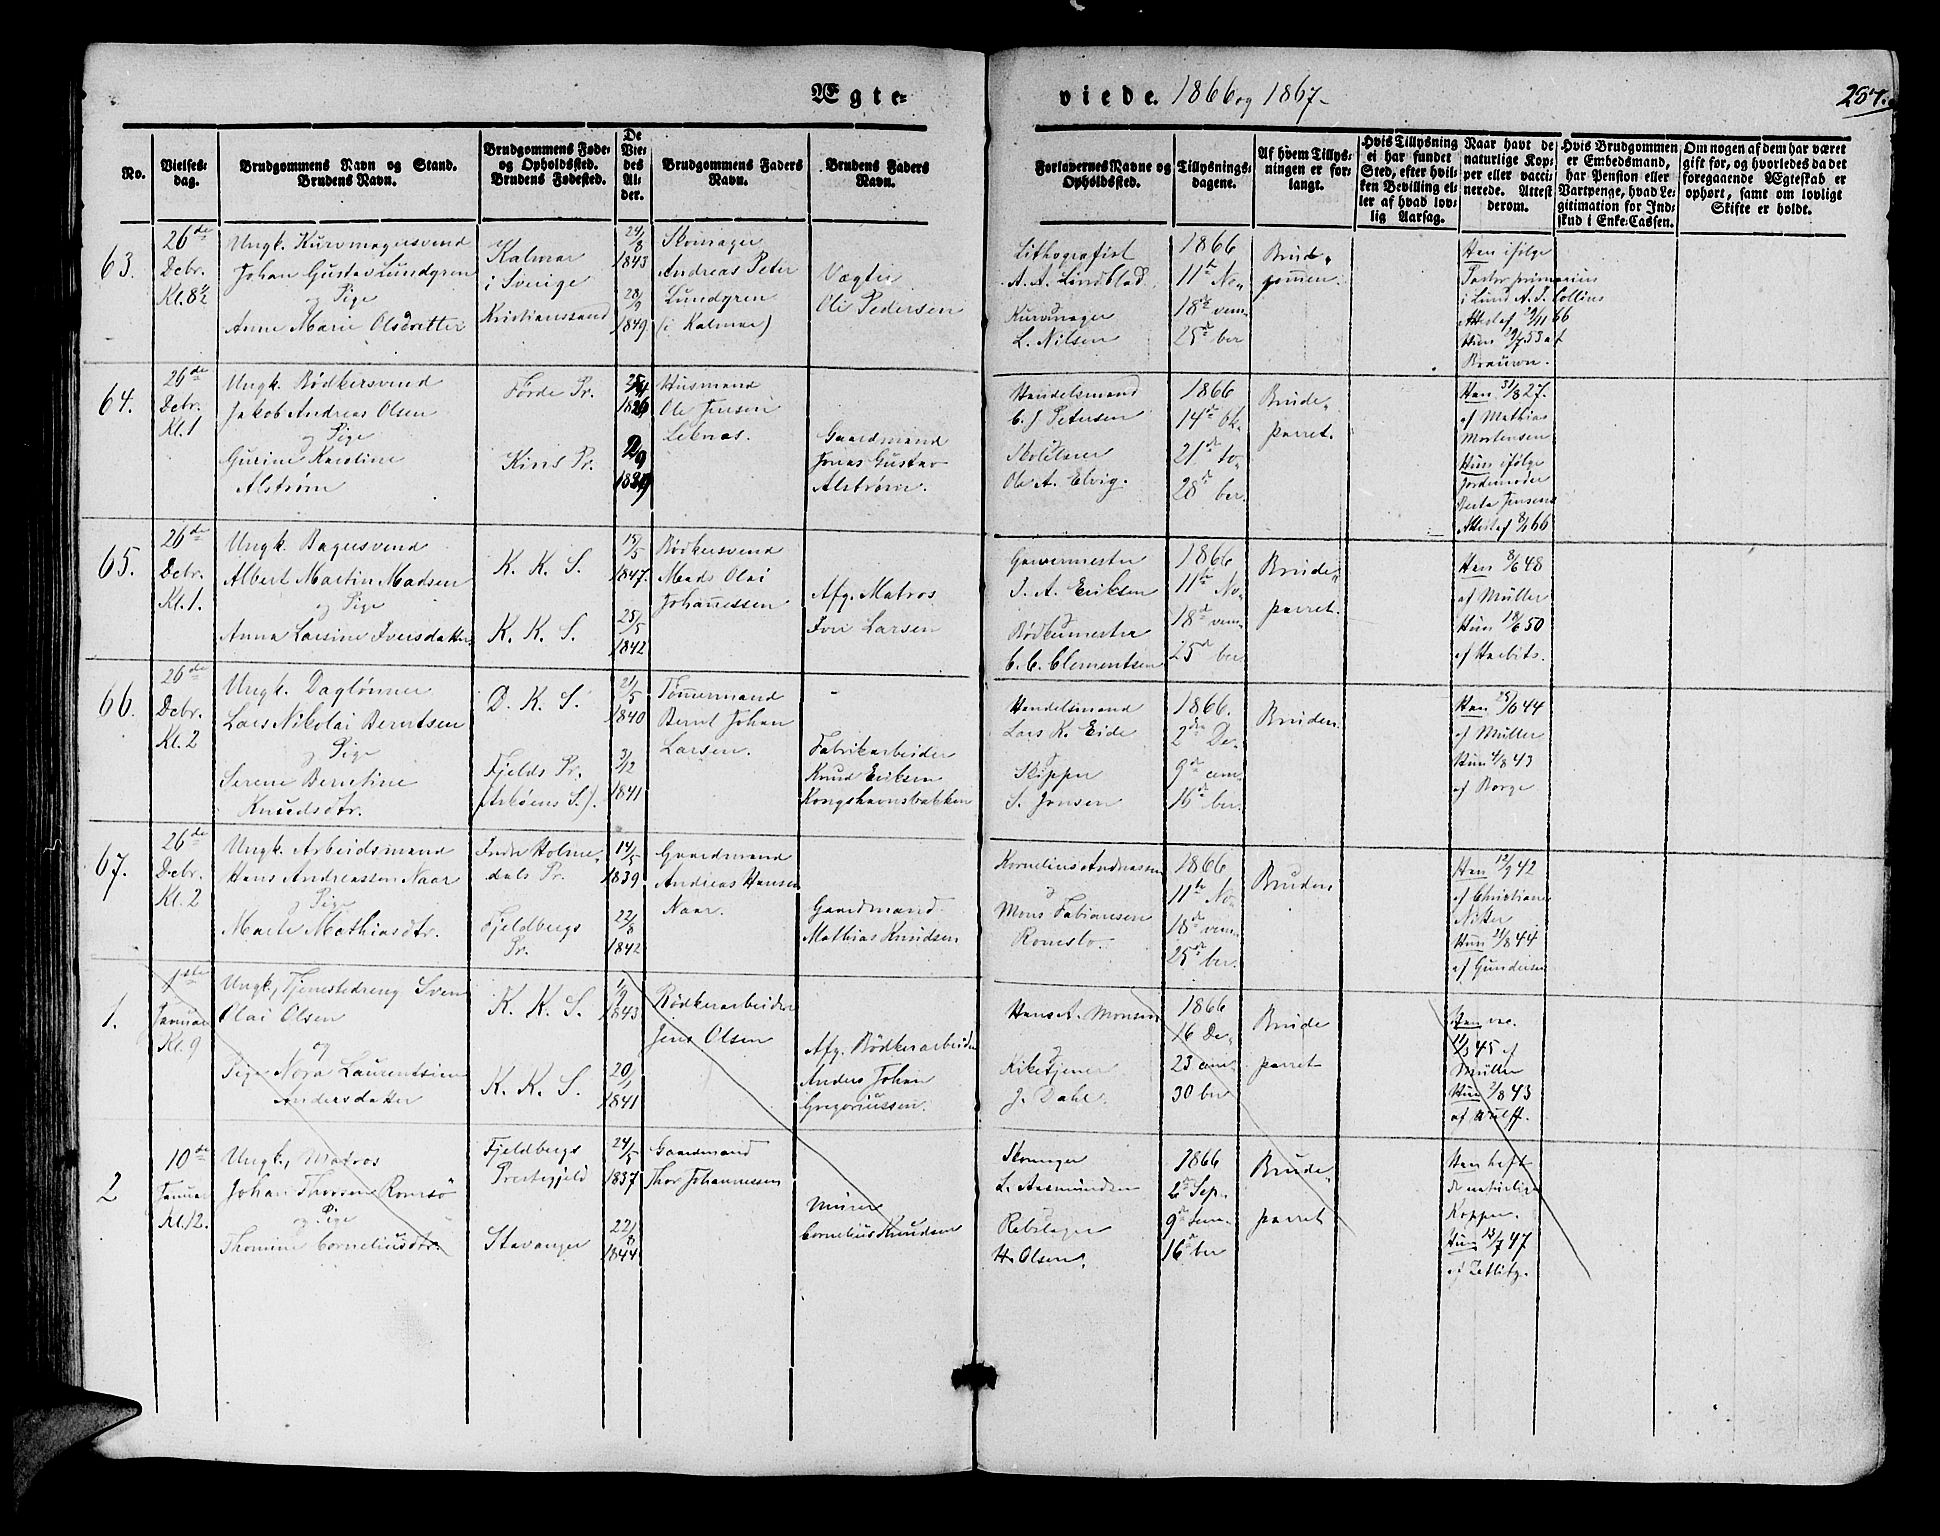 Ægte=
viede. 1866 og 1867.
257.
No.
Vielses=
dag.
Brudgommens Navn og Stand.
Brudens Navn.
Brudgommens Føde=
og Opholdssted.
Brudens Fødested.
De
Vie=
des
Al=
der.
Brudgommens Faders
Navn.
Brudens Faders
Navn.
Forlovernes Navne og
Opholdssted.
Tillysnings=
dagene.
Af hvem Tillys=
ningen er for=
langt.
Hvis Tillysning
ei har fundet
Sted, efter hvil=
ken Bevilling el=
ler af hvad lov=
lig Aarsag.
Naar havt de
naturlige Kop=
per eller vacci=
nerede. Attest
derom.
Hvis Brudgommen
er Embedsmand,
har Pension eller
Vartpenge, hvad Le=
gitimation for Ind=
skud i Enke=Cassen.
Om nogen af dem har været
gift for, og hvorledes da det
foregaaende Ægteskab er
ophørt, samt om lovligt
Skifte er holdt.
63.
26de
Dcbr.
Kl. 8½
Ungk. Kurvmagersvend
Johan Gustav Lundgren
og Pige
Anne Marie Olsdatter
Kalmar
i Sverige
Kristianssand
24/8
1843
28/9
1849
Skomager
Andreas Peter
Lundgren
(i Kalmar)
Vægter
Ole Pedersen
Lithografist
A. A. Lindblad.
Kurvmager
L. Nilsen
1866
11te No„
18de vem„
25de ber
Brud„
gomen.
Han ifølge
Pastor primarius
i Lund A. S. Collins
Attest af 29/11 66
Hun 29/7 53 af
Brauwn.
64.
26de
Dcbr.
Kl. 1
Ungk. Bødkersvend
Jakob Andreas Olsen
og Pige
Gurine Karoline
Alstrøm
Førde Pr.
Kins Pr.
1826
Husmand
Ole Jensen
Leknæs.
Gaardmand
Jonas Gustav
Alstrøm.
Handelsmand
C. J. Petersen
Skolelærer
Ole A. Elvig.
1866
14de Ok„
21de to„
28de ber.
Brude„
parret.
Han 31/8 27.
af Mathias
Mortensen
Hun ifølge
Jordemoder
Berta Jensens
Attest af 8/1 66
65.
26de
Dcbr.
Kl. 1.
Ungk. Bagersvend
Albert Martin Madsen
og Pige
Anna Larsine Iversdatter
K. K. S.
K. K. S.
15/5
1847.
25/5
1842
Bødkersvend
Mads Olai
Johannessen
Afg. Matros
Iver Larsen
Garvermester
J. A. Eriksen
Bødkermester
C. C. Clementsen
1866
11te No„
18de vem„
25de ber
Brude„
parret.
Han 8/6 48
af Müller
Hun 18/6 50
af Harbits.
66.
26de
Dcbr.
Kl. 2
Ungk. Daglønner
Lars Nikolai Berntsen
og Pige
Serene Berntine
Knudsdtr.
D. K. S.
Fjelds Pr.
(Askøens S.).
21/5
1840
3/12
1841
Tømmermand
Bernt Johan
Larsen.
Fabrikarbeider
Knud Eriksen
Kongshavnsbakken
Handelsmand
Lars K. Eide
Skipper
S. Jensen
1866.
2den De„
9de cem„
16de ber.
Bruden.
Han 25/6 44
af Müller
Hun 4/8 43
af Borge
67.
26de
Dcbr.
Kl. 2
Ungk. Arbeidsmand
Hans Andreassen Naar
og Pige
Marte Mathiasdtr.
Indre Holme„
dals Pr.
Fjeldbergs
Pr.
14/5
1839
22/8
1842
Gaardmand
Andreas Hansen
Naar.
Gaardmand
Mathias Knudsen
Kornelius Andreassen
og
Mons Fabiansen
Romslo.
1866
11te No„
18de vem„
25de ber.
Bruden
Han 12/9 42
af Christian
Nitter
Hun 21/8 44
af Gundersen
1.
1ste
Januar
Kl. 9
Ungk., Tjenestedreng Sven
Olai Olsen
og
Pige Nora Laurentsien
Andersdatter
K. K. S.
K. K. S.
1/9
1843
20/1
1841
Bødkerarbeider
Jens Olsen
Afg. Bødkerarbeider
Anders Johan
Gregoriussen.
Hans A. Monsen
og
Kirketjener
J. Dahl.
1866
16 De„
23 cem„
30 ber
Brude
parret
Han vac.
11/9 45 af
Müller
Hun 2/8 43
af Wulff.
2
10de
Januar
Kl. 12.
Ungk., Matros
Johan Thorsen Romsø
og Pige
Thomine Corneliusdtr.
Fjeldbergs
Prestegjeld
Stavanger
24/5
1837
22/8
1844
Gaardmand
Thor Johannessen
Murer
Cornelius Knudsen
Skomager
L. Aasmundsen
Rebslager
H. Olsen.
1866
2de Sep„
9de tem„
16de ber
Brude„
parret
Han havt
de naturlige
Kopper.
Hun 15/7 47
af Zetlitz.